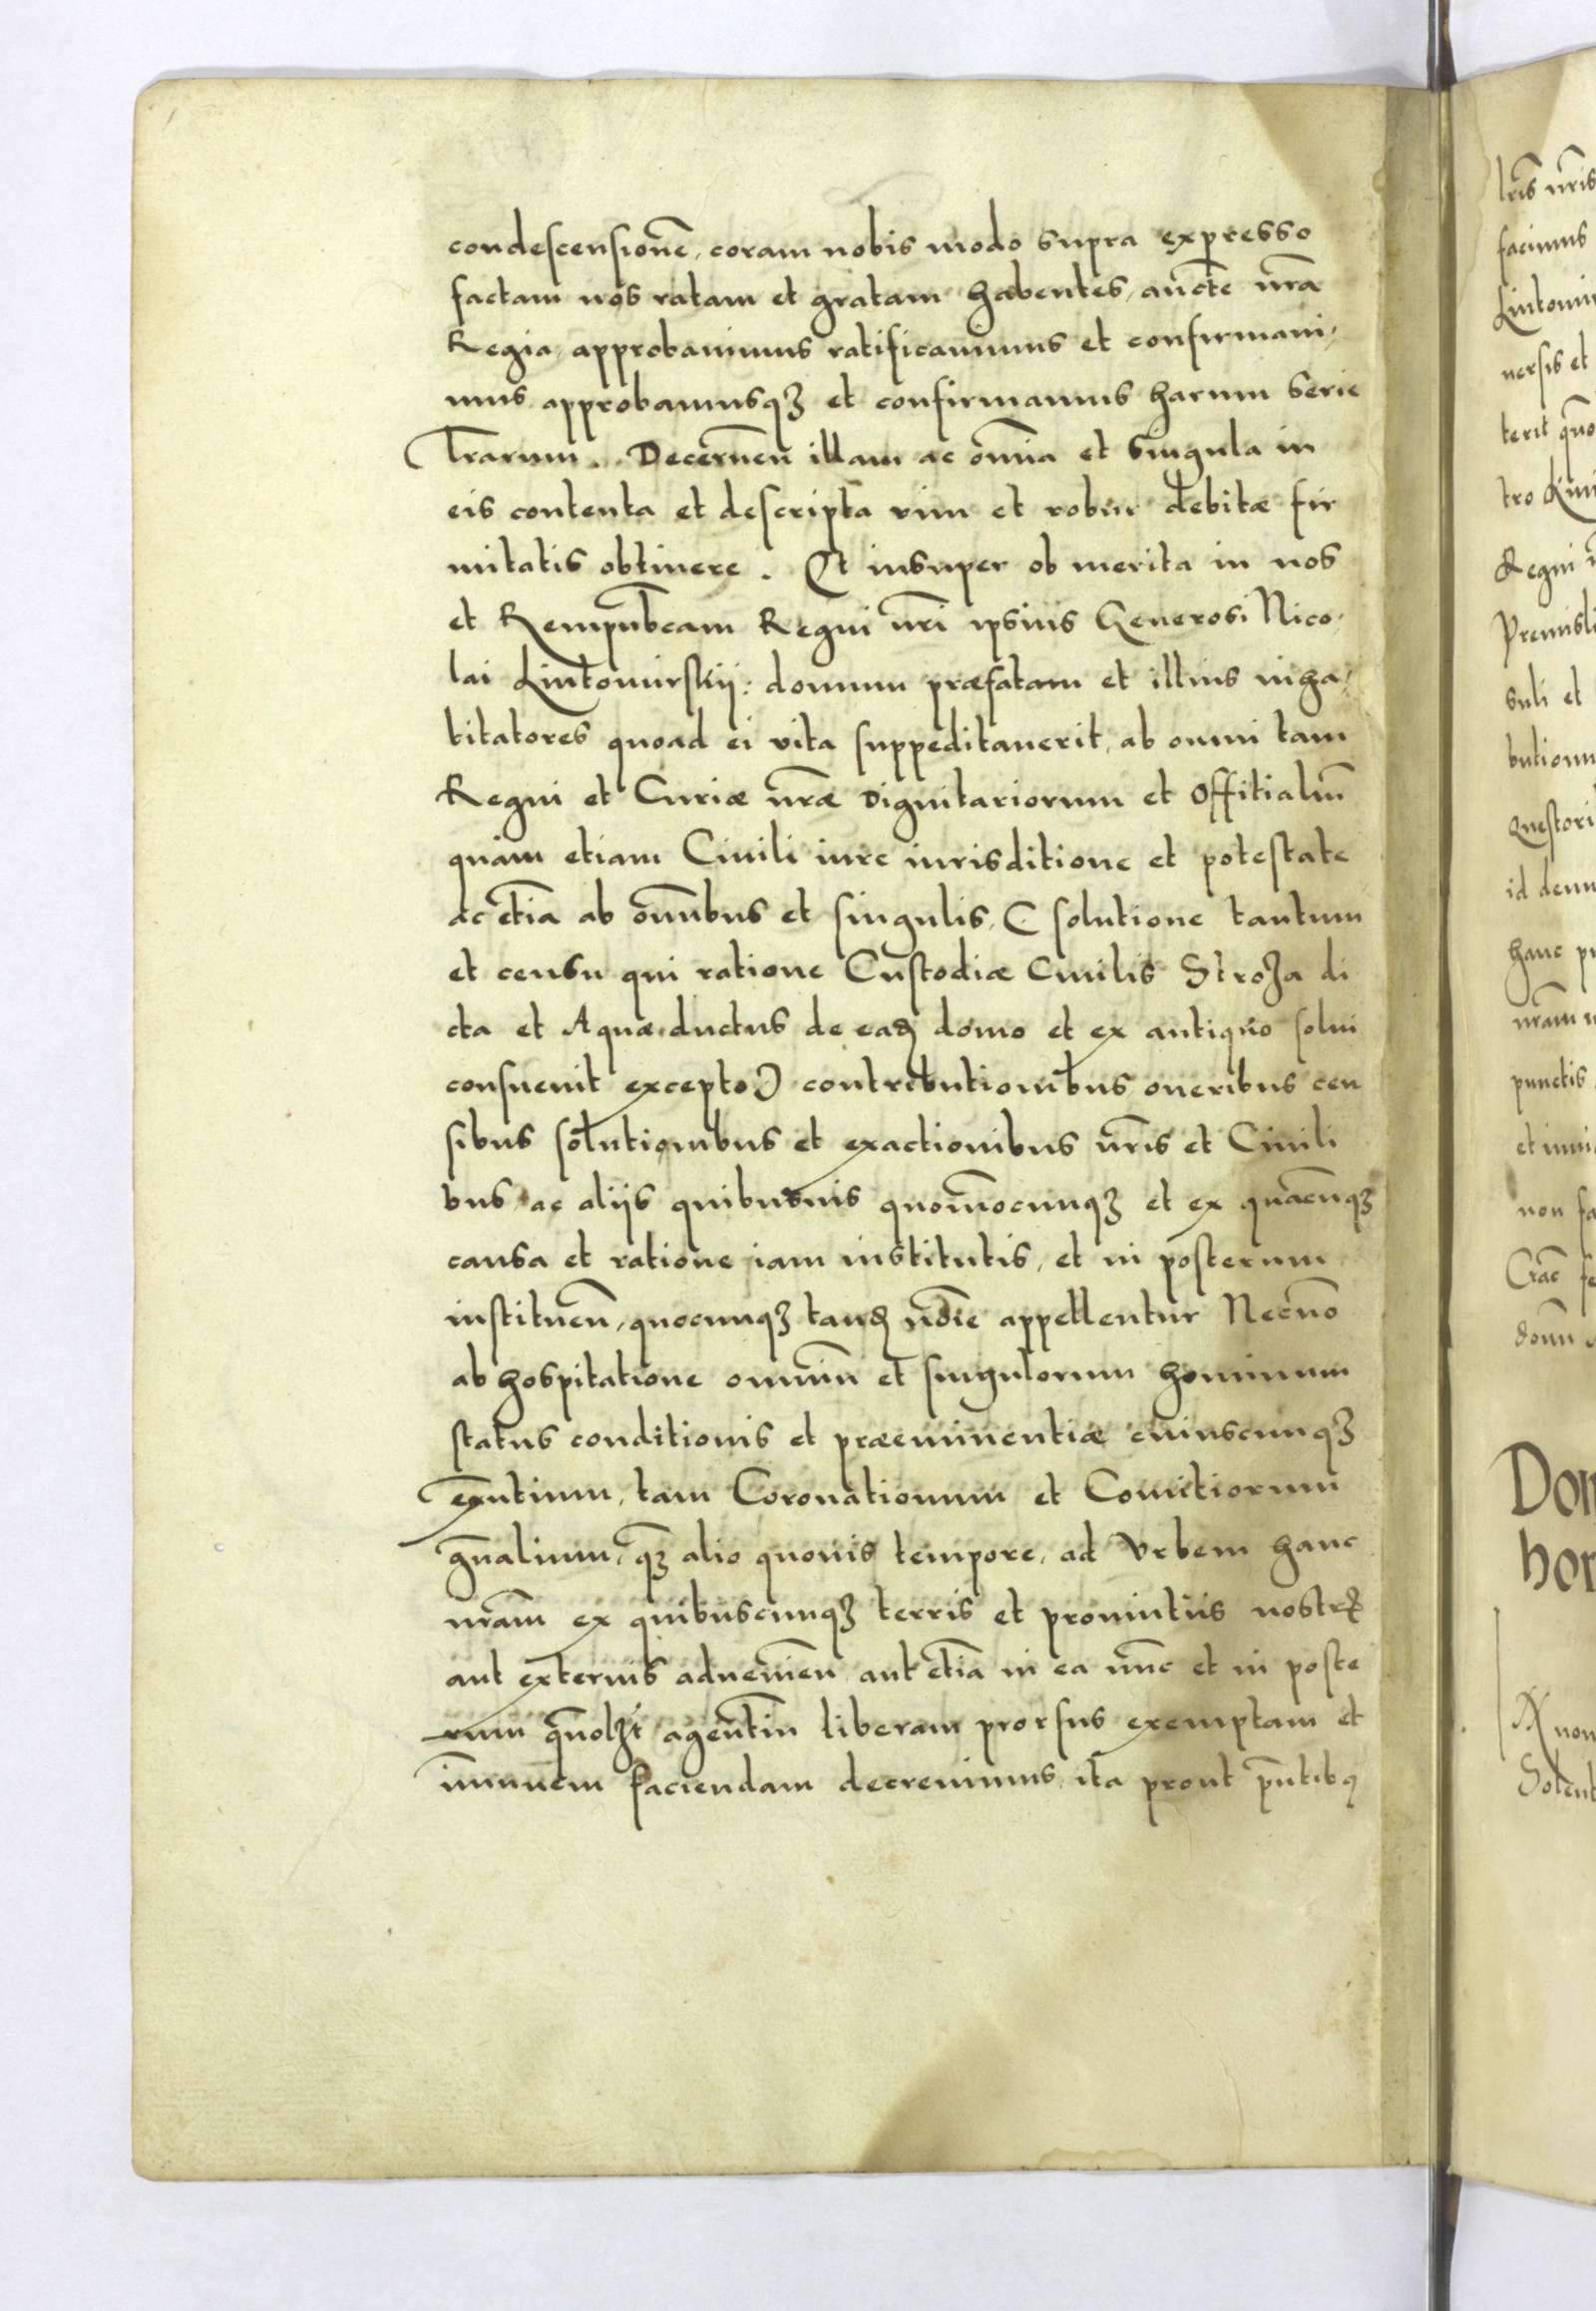 condescensionē, coram nobis modo supra expresso
factam nos ratam et gratam habentes, auctte nrā
Regia, approbavimus ratificavimus et confirmavi,
mus, approbamusqꝫ et confirmamus harum serie
lrarum. Decernen̄ illam ac om̄ia et singula in
eis contenta et descripta vim et robur debitæ fir
mitatis obtinere. Et insuper ob merita in nos
et Rempub̄cam Regni nr̄i ipsius Generosi Nico,
lai Lintomirskij: domum præfatam et illius inha,
bitatores quoad ei vita suppeditaverit, ab omni tam
Regni et Curiæ nr̄æ Dignitariorum et Offitialiū
quàm etiam Civili iure iurisditione et potestate
ac etīa ab om̄ibus et singulis, ( solutione tantum
et censu qui ratione Custodiæ Civilis Stroza di
cta et Aquæductus de eaḋ domo et ex antiquo solvi
consuevit excepto) contributionibus oneribus cen
sibus solutionibus et exactionibus nr̄is et Civili
bus, ac aliis quibusvis quomōcunqꝫ et ex quacūqꝫ
causa et ratione iam institutis, et in posterum
instituen̄, quocunqꝫ tanḋ nōīe appellentur Necnō
ab hospitatione omniū et singulorum hominum
status conditionis et præeminentiæ cuiuscunqꝫ
exn̄tium, tam Coronationum et Comitiorum
gn̄alium, qꝫ alio quovis tempore, ad Vrbem hanc
nrām ex quibuscunqꝫ terris et provintiis nostrꝝ
aut externis advenien̄ aut etīa in ea nūc et in poste
rum quōlꝫt agentiū liberam prorsus exemptam et
im̄unem faciendam decrevimus, ita prout pn̄tibꝰ